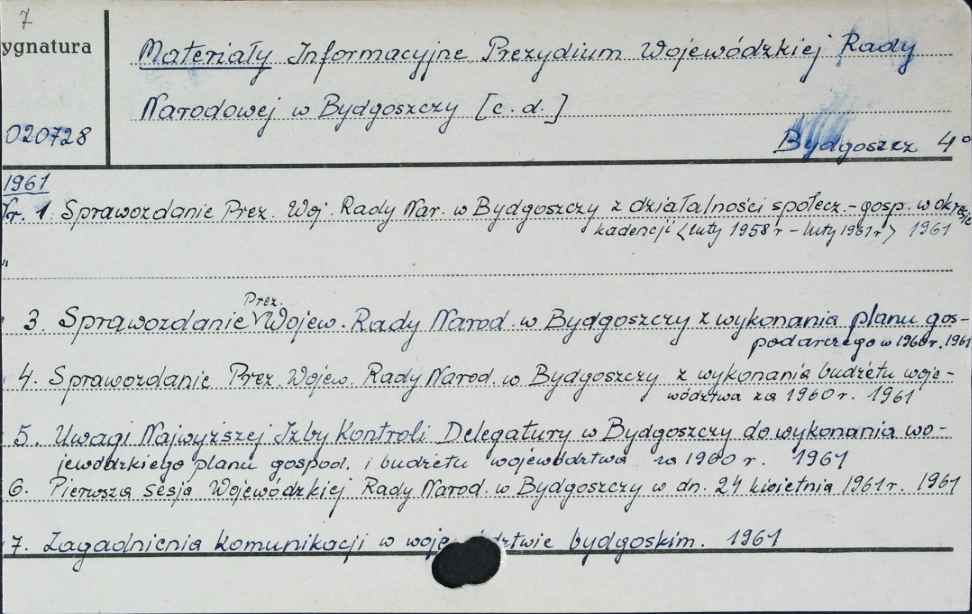 7
ygnatura
Materiały Informacyjne Prezydium Wojewódzkiej Rady
Narodowej w Bydgoszczy [c.d.]
020728
Bydgoszcz 4°
1961
Nr. 1. Sprawozdanie Prez. Woj. Rady Nar. w Bydgoszczy z działalności społecz.-gosp. w okresie
kadencji <luty 1958 r - luty 1961 r> 1961
"
3. Sprawozdanie Prez. Wojew. Rady Narod. w Bydgoszczy z wykonania planu gos-
podarczego w 1960 r. 1961
4. Sprawozdanie Prez. Wojew. Rady Narod. w Bydgoszczy z wykonania budżetu woje-
wództwa za 1960 r. 1961
5. Uwagi Najwyższej Izby Kontroli Delegatury w Bydgoszczy do wykonania wo-
jewódzkiego planu gospod. i budżetu województwa za 1960 r. 1961
6. Pierwsza sesja Wojewódzkiej Rady Narod. w Bydgoszczy w dn. 24 kwietnia 1961 r. 1961
7. Zagadnienia komunikacji w woje dztwie bydgoskim. 1961